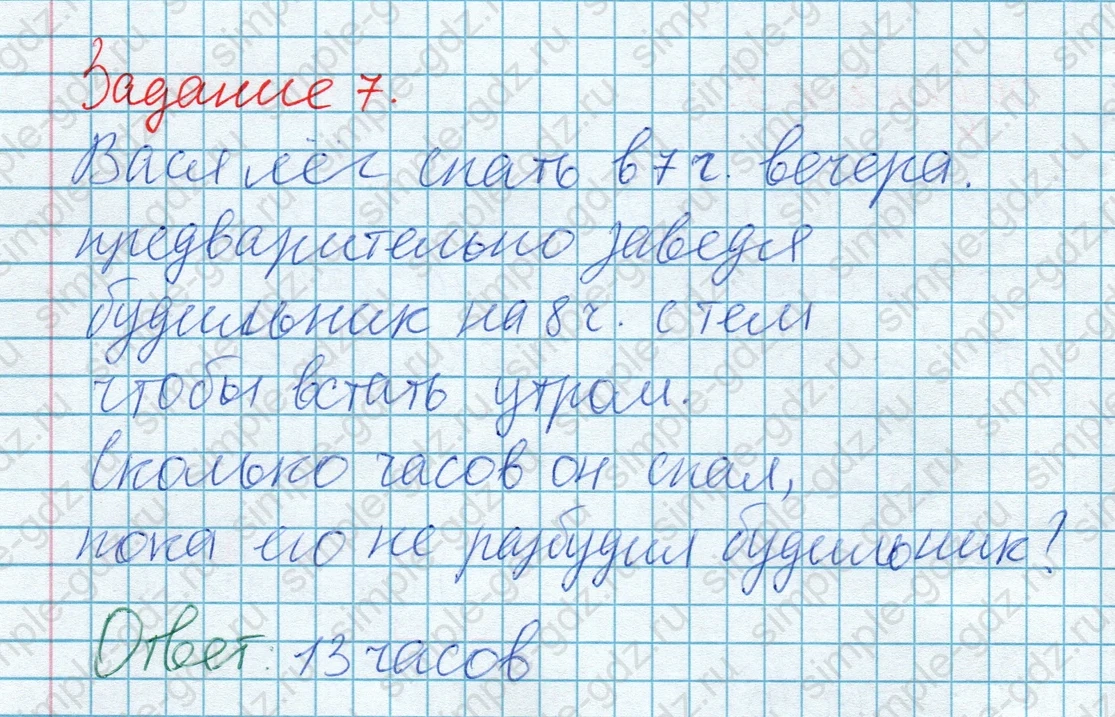 Задание 7.
Вася лёг спать в 7 ч. вечера.
предварительно заведя
будильник на 8 ч. с тем
чтобы встать утром.
Сколько часов он спал,
пока его не разбудил будильник?
Ответ: 13 часов
simple-gdz.ru